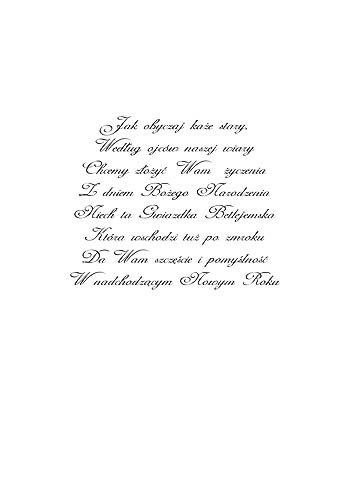 Jak obyczaj każe stary,
Według ojców naszej wiary
Chcemy złożyć Wam życzenia
Z dniem Bożego Narodzenia
Niech ta Gwiazdka Betlejemska
Która wschodzi tuż po zmroku
Da Wam szczęście i pomyślność
W nadchodzącym Nowym Roku